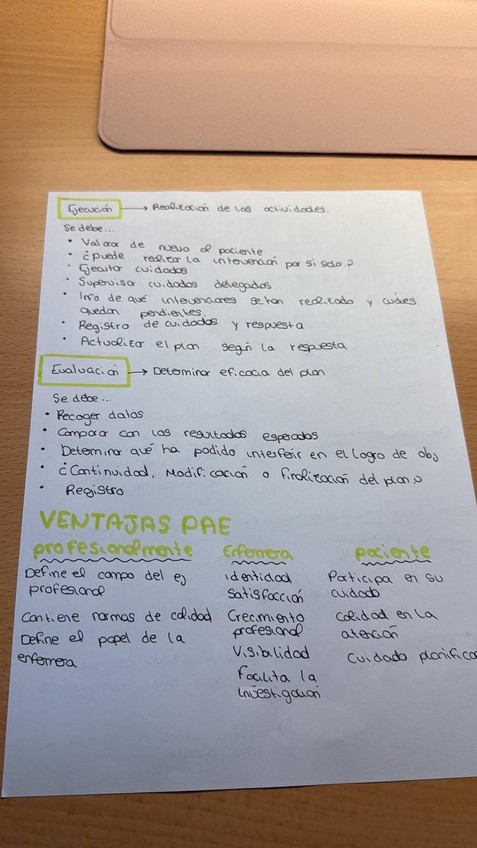 Ejecución → Realización de las actividades.
Se debe...
• Valorar de nuevo al paciente
• ¿puede realizar la intervención por sí solo?
• Ejecutar cuidados
• Supervisar cuidados delegados
• Info de qué intervenciones se han realizado y cuáles
quedan pendientes.
• Registro de cuidados y respuesta
• Actualizar el plan según la respuesta
Evaluación → Determinar eficacia del plan
Se debe...
• Recoger datos
• Comparar con los resultados esperados
• Determina qué ha podido interferir en el logro de obj
• ¿Continuidad, Modificación o finalización del plan?
• Registro
VENTAJAS PAE
profesionalmente
Define el campo del ej
profesional
Contiene normas de calidad
Define el papel de la
enfermera
Enfermera
identidad
satisfacción
Crecimiento
profesional
Visibilidad
Facilita la
investigación
paciente
Participa en su
cuidado
Calidad en la
atención
Cuidado planifica